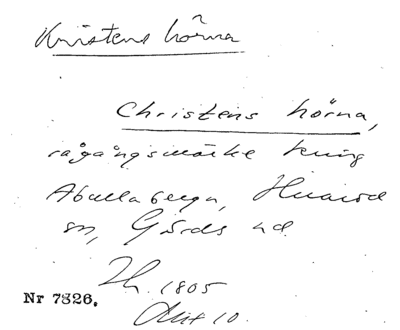 Kristens hörna
Christens hörna,
rågångsmärke kring
Aballaberga, Huarød
sn, Gärds hd
Lh. 1805
Akt 10.
Nr 7826.